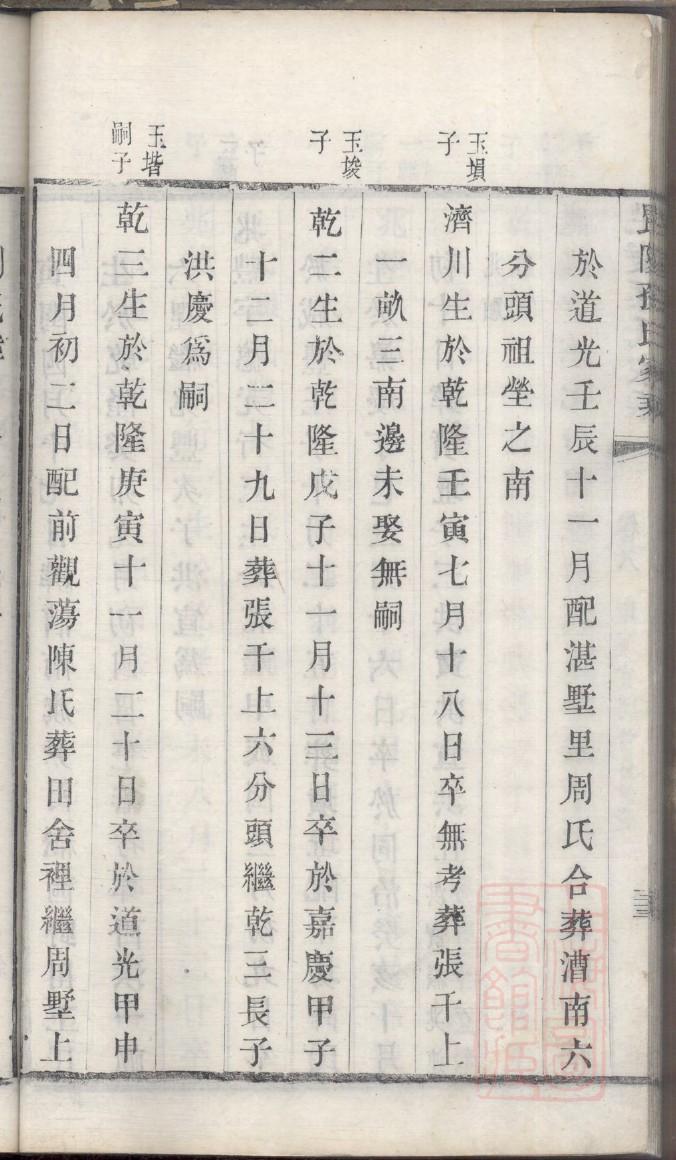 於道光壬辰十一月配湛墅里周氏合葬漕南六
分頭祖塋之南
玉塤
子
濟川生於乾隆壬寅七月十八日卒無考葬張干上
一畝三南邊未娶無嗣
玉埈
子
乾二生於乾隆戊子十一月十三日卒於嘉慶甲子
十二月二十九日葬張干上六分頭繼乾三長子
洪慶爲嗣
玉堦
嗣子
乾三生於乾隆庚寅十一月二十日卒於道光甲申
四月初二日配前觀蕩陳氏葬田舍裡繼周墅上